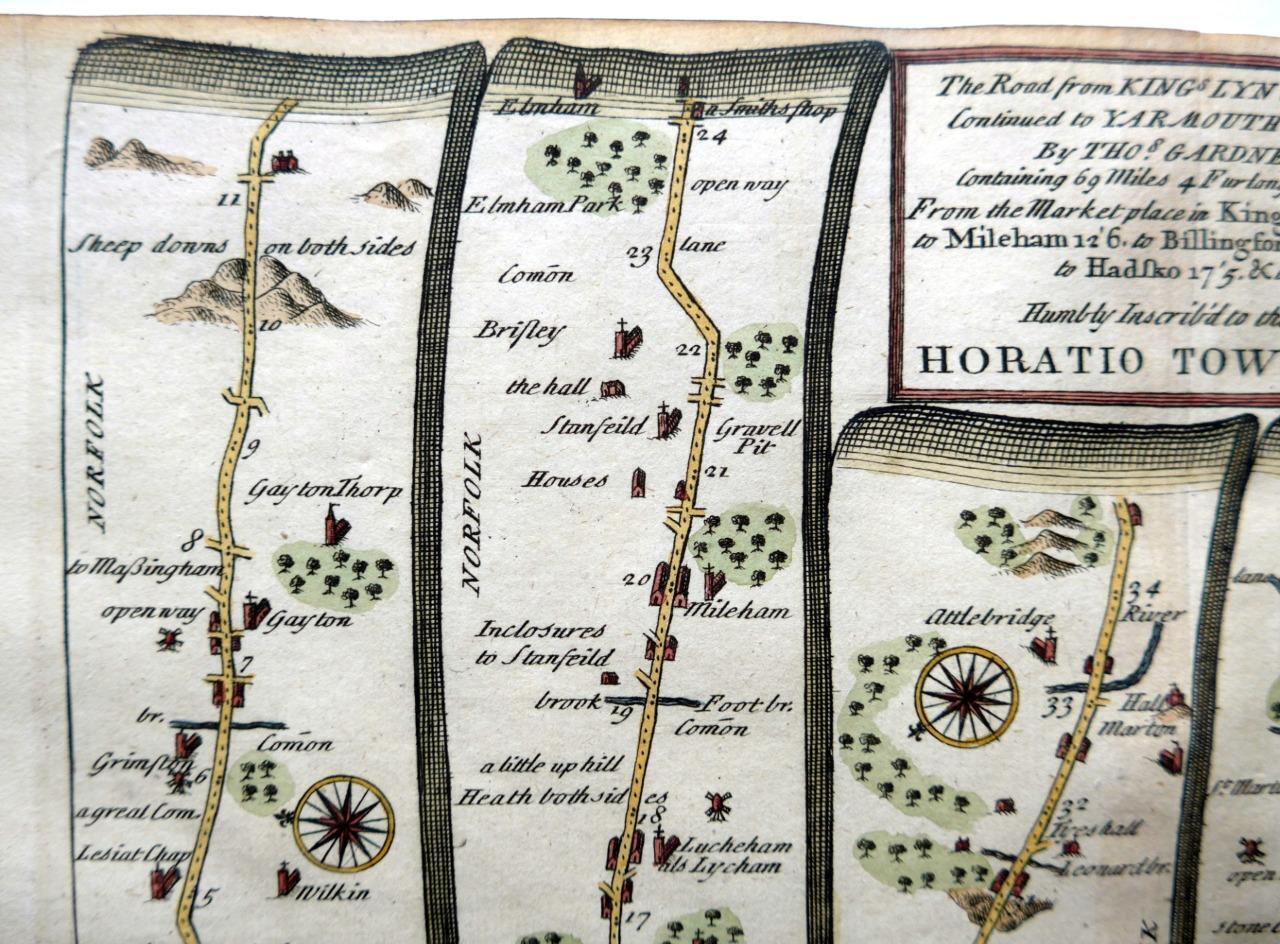 11
Sheep downs on both sides
10
NORFOLK
9
Gayton Thorp
8
to Maßingham
open way
Gayton
7
br.
Com̄on
Grimſton
6
a great Com.
Leſiat Chap
5
Wilkin
Elmham
a Smiths ſhop
24
open way
Elmham Park
23
lane
Com̄on
Briſley
22
the hall
Stanſeild
Gravell
Pit
NORFOLK
21
Houses
20
Mileham
Incloſures
to Stanſeild
brook
19
Foot br.
Com̄on
a little up hill
Heath both sides
18
Lucheham
als Lycham
17
The Road from KINGS LYN
Continued to YARMOUTH
By THOS GARDNE
Containing 69 Miles 4 Furlon
From the Market place in King
to Mileham 12'6. to Billingfor
to Hadſko 17'5. &
Humbly Inscrib'd to the
HORATIO TOW
34
River
Attlebridge
33
Hall
Marton
32
Ives hall
Leonard br.
K
lane
St. Mart
open
stone